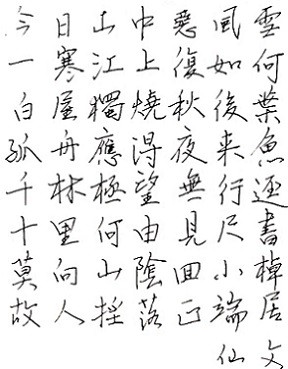 今日山中惡風雲
一寒江上復如何
白屋獨燒秋後葉
孤舟應得夜来魚
千林極望無行逐
十里何由見尺書
莫向山陰回小棹
故人摇落己端居
仙文